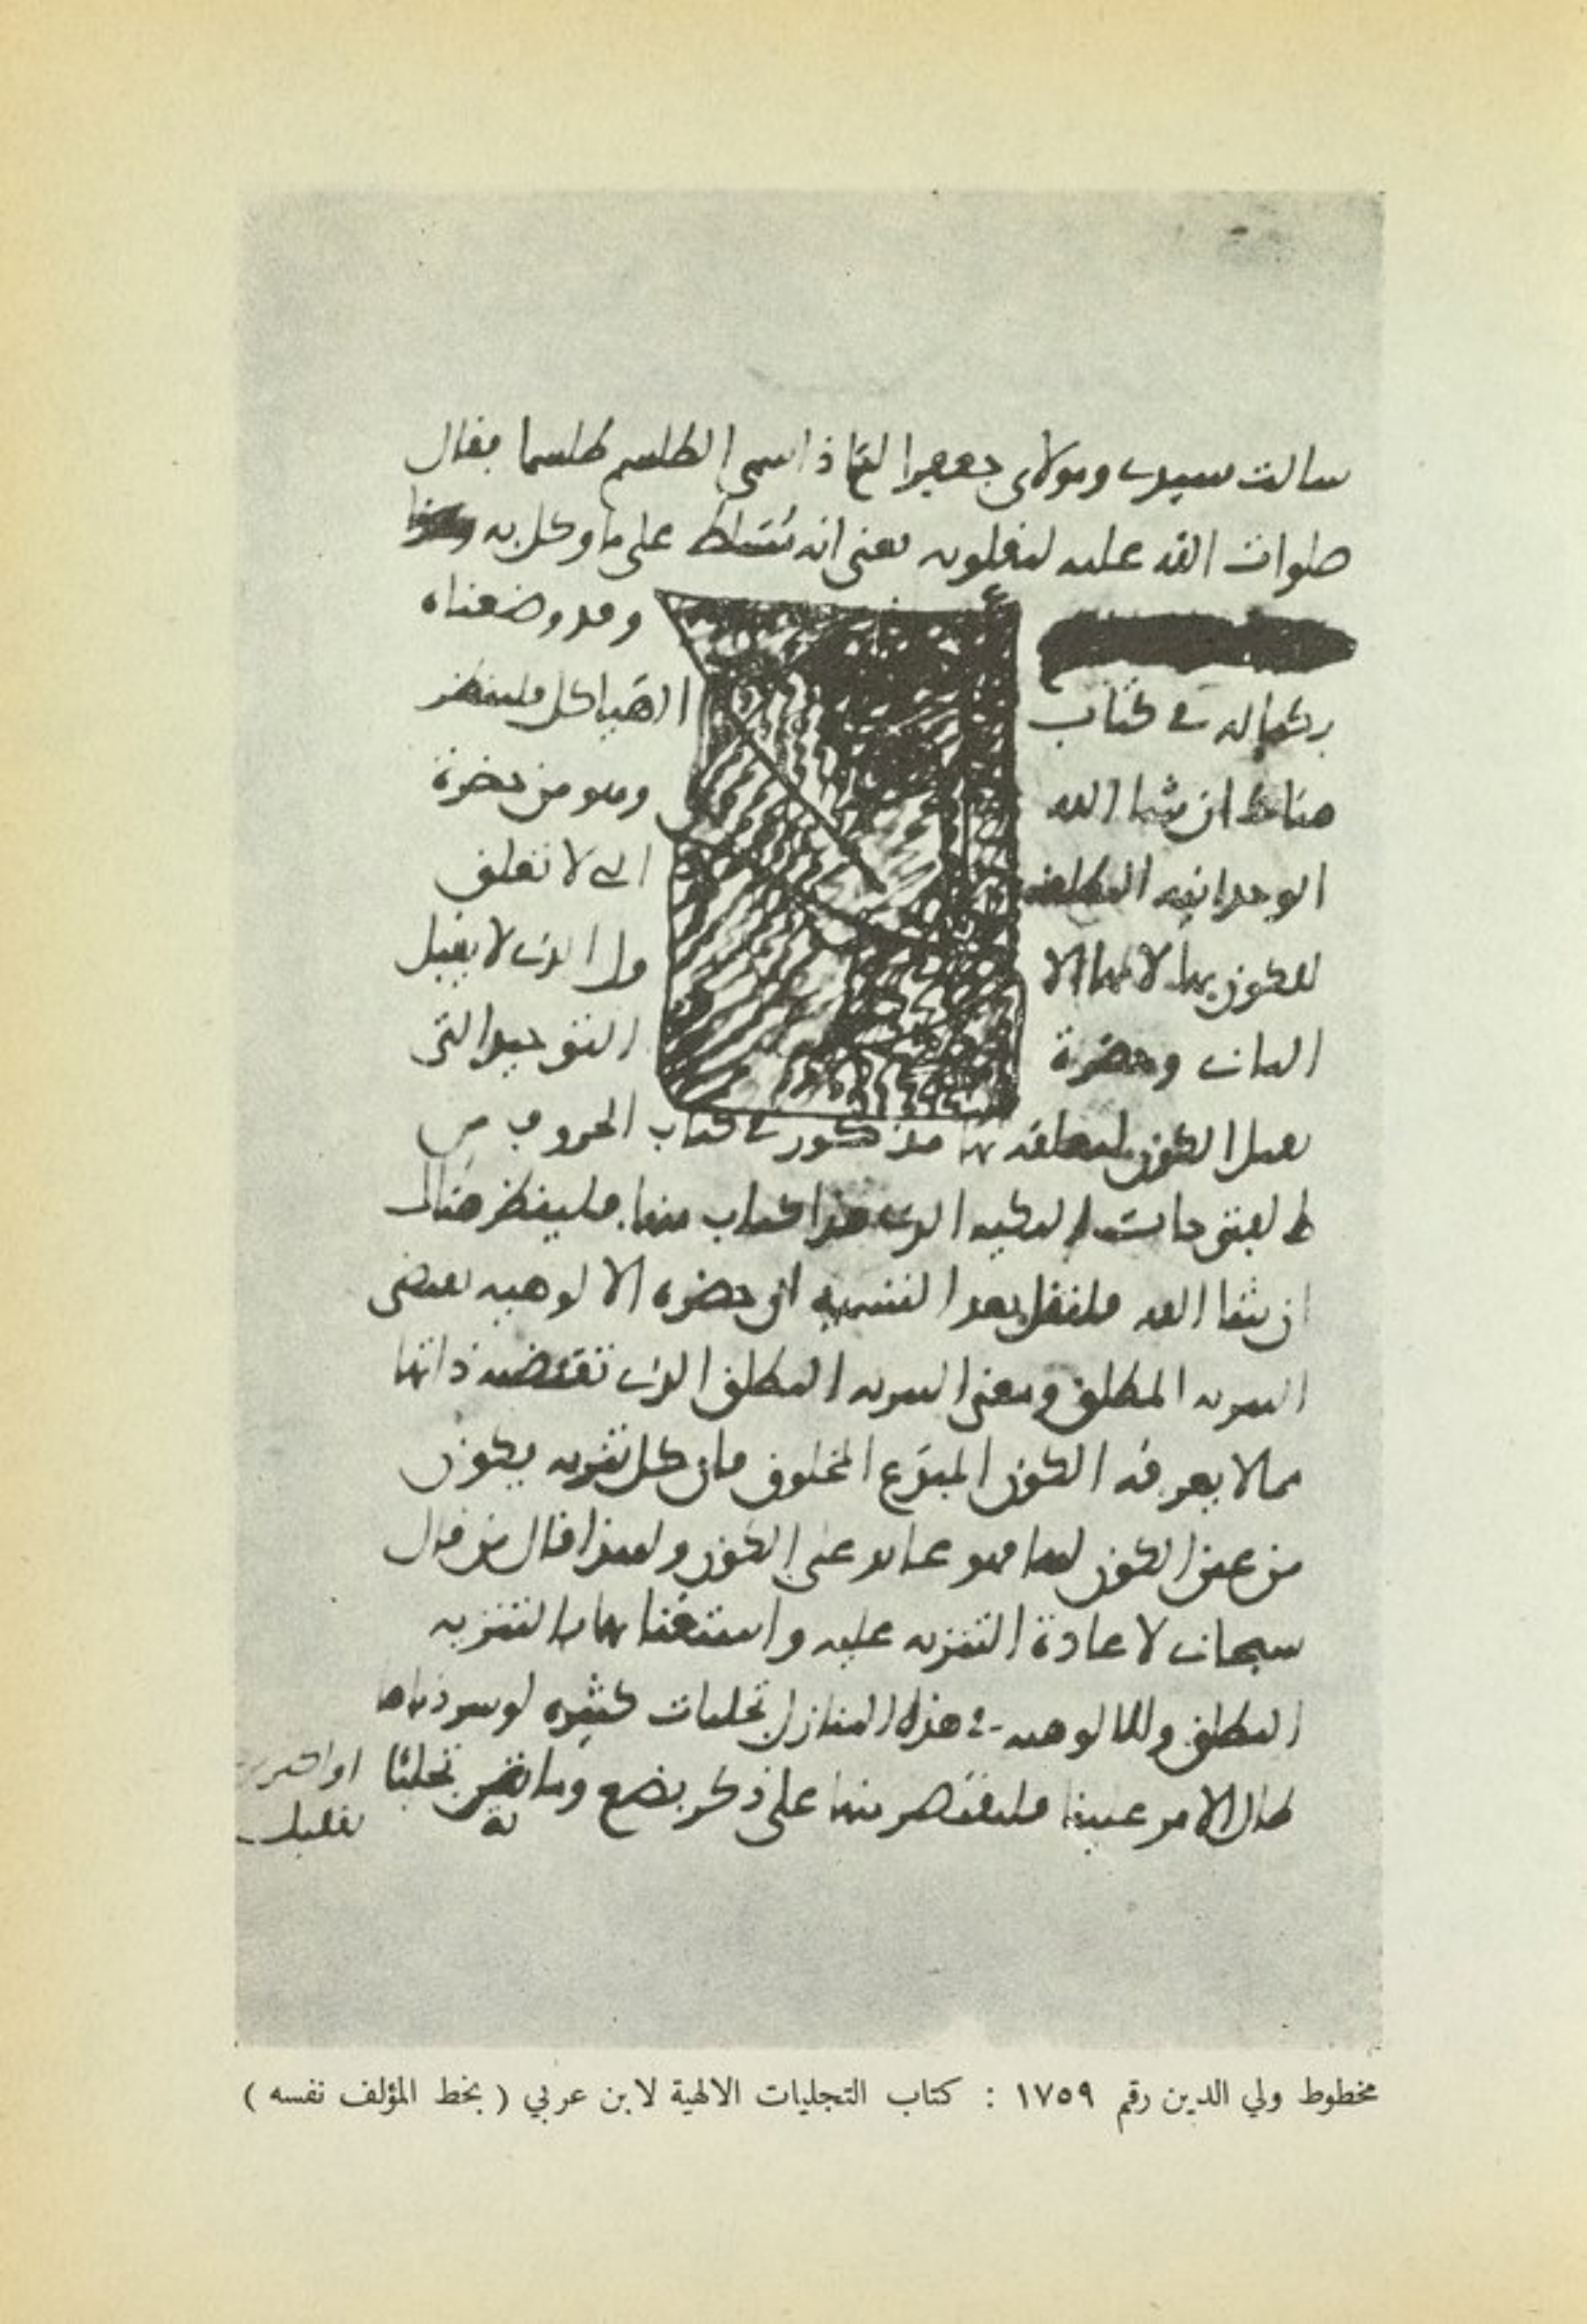 سالت سيدي ومولاي جعفرا لماذا سمى الطلسم طلسما فقال
صلوات الله عليه لمقلوبه يعني انه تسلط على ما وكل به
وقد وضعناه
بكماله في كتاب الهياكل فلينظر
هناك ان شا الله وهو من حضرة
الوحدانيه المطلقه التي لا تعلق
للكون بها لانها الاول الذي لا يقبل
الثاني وحضرة التوحيد التي
تقبل الكون لتعلقه بها مذكور في كتاب الحروف من
الفتوحات المكيه الذي هذا الكتاب منها فلينظر هناك
ان شا الله فلنقل بعد التسميه ان حضره الالوهيه تقتضي
التنزيه المطلق ومعنى التنزيه المطلق الذي تقتضيه ذاتها
مما لا يعرفه الكون المبدع المخلوق فان كل تنزيه يكون
من عين الكون لها فهو عايد على الكون ولهذا قال من قال
سبحاني لاعادة التنزيه عليه واستغنايها بالتنزيه
المطلق وللالوهيه في هذه المنازل تجليات كثيره لو سردناها
طال الامر علينا فلنقتصر منها على ذكر بضع وماية تجليا او اكثر
بقليل
مخطوط ولي الدين رقم ١٧٥٩ : كتاب التجليات الالهية لابن عربي ( بخط المؤلف نفسه )